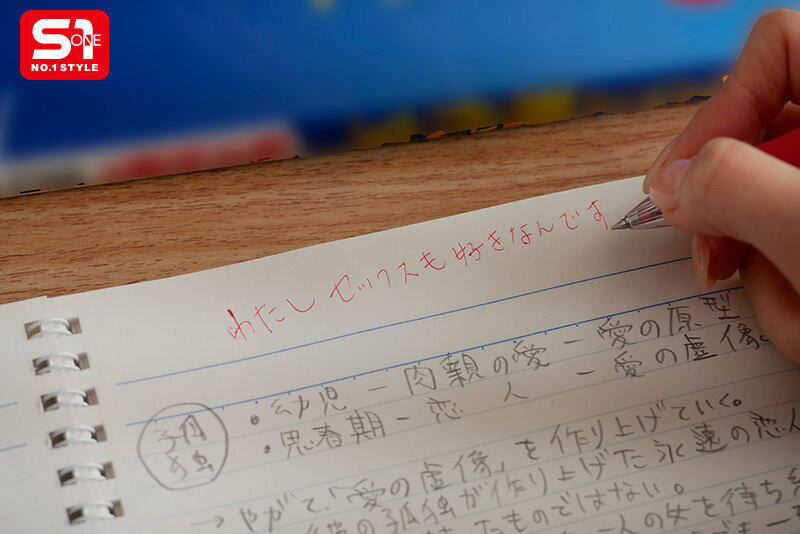 S1
ONE
NO.1 STYLE
わたし セックスも 好きなんです
孤独
・幼児 ー 肉親の愛 ー 愛の原型
・思春期 ー 恋人 ー 愛の虚像。
→ やがて、「愛の虚像」を作り上げていく。
の孤独が作り上げた永遠の恋人
たものではない。
一人の女を待ち